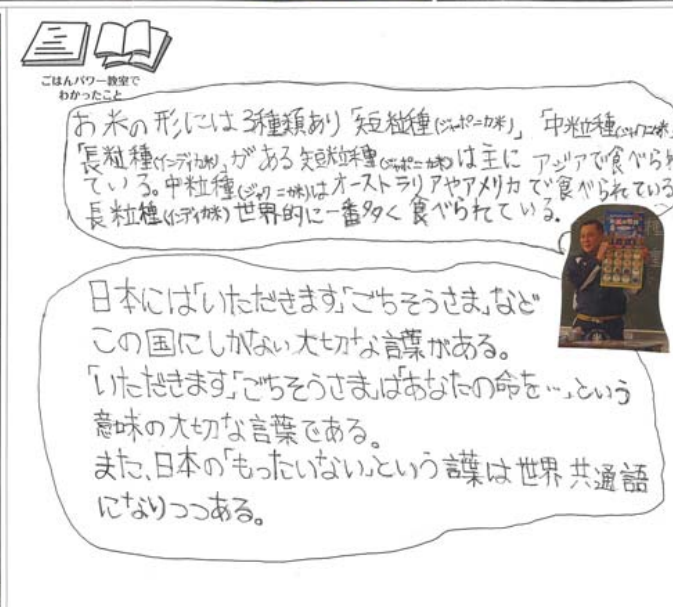 ごはんパワー教室で
わかったこと
お米の形には3種類あり「短粒種(ジャポニカ米)」「中粒種(ジャワニカ米)
「長粒種(インディカ米)」がある短粒種(ジャポニカ米)は主にアジアで食べられ
ている。中粒種(ジャワニカ米)はオーストラリアやアメリカで食べられている
長粒種(インディカ米)世界的に一番多く食べられている。
日本には「いただきます」「ごちそうさま」など
この国にしかない大切な言葉がある。
「いただきます」「ごちそうさま」は「あなたの命を…」という
意味の大切な言葉である。
また、日本の「もったいない」という言葉は世界共通語
になりつつある。